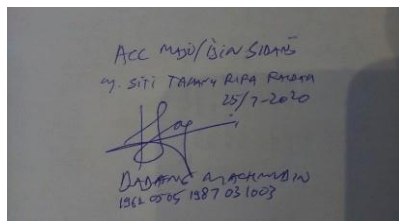 ACC MAJU/IJIN SIDANG
a.n. SITI TAHANY RIFA
25/7-2020
DADANG MACHMUDIN
1962 05 05 1987 03 1003